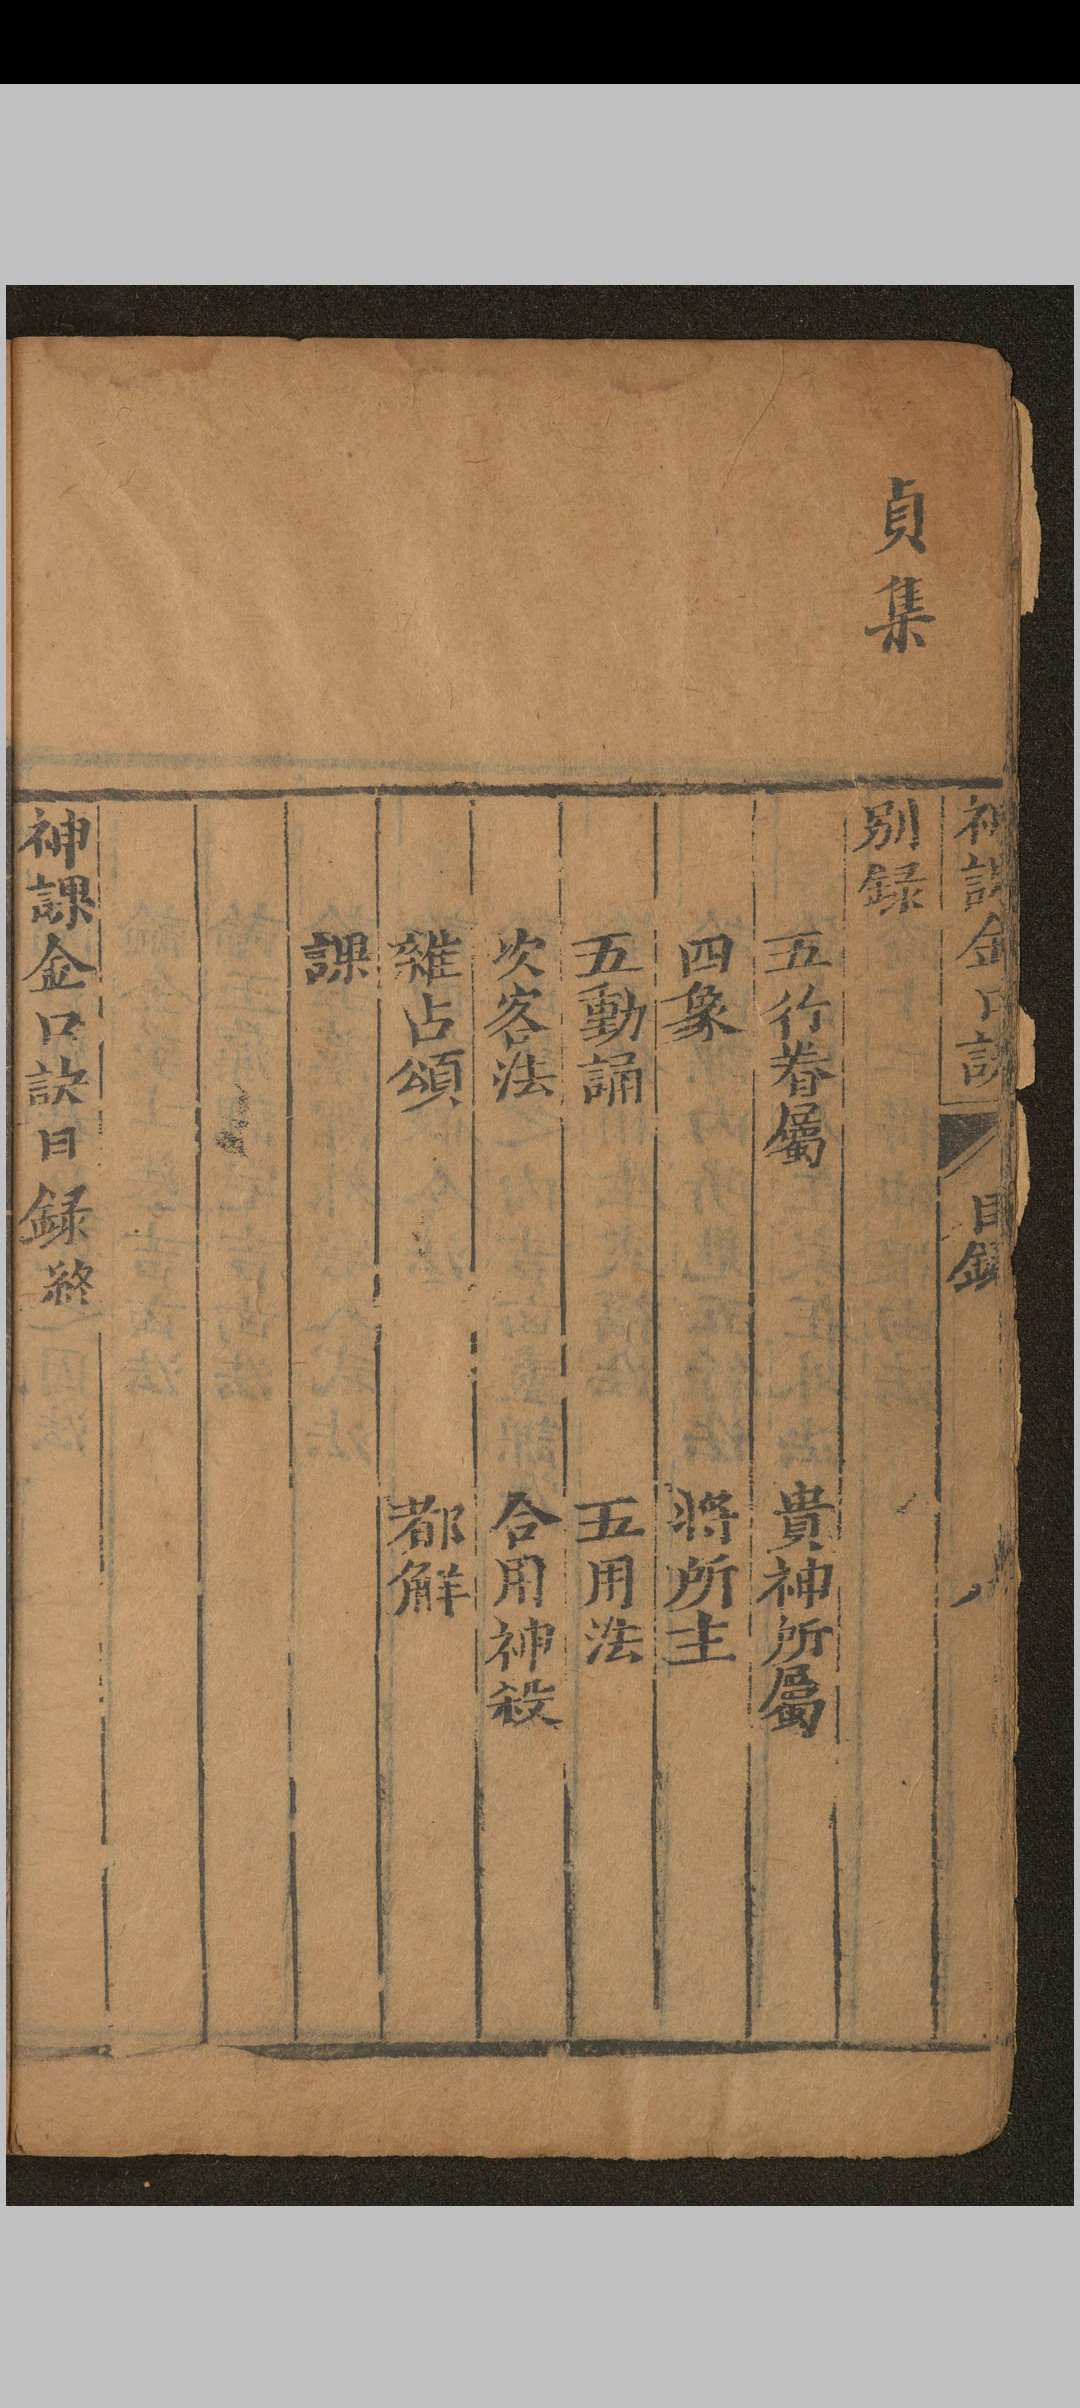 貞集
神課金口訣 目錄 八
別録
五行眷屬 貴神所屬
四象 將所主
五動誦 五用法
次客法 合用神殺
雜占頌 都解
課
神課金口訣目録終